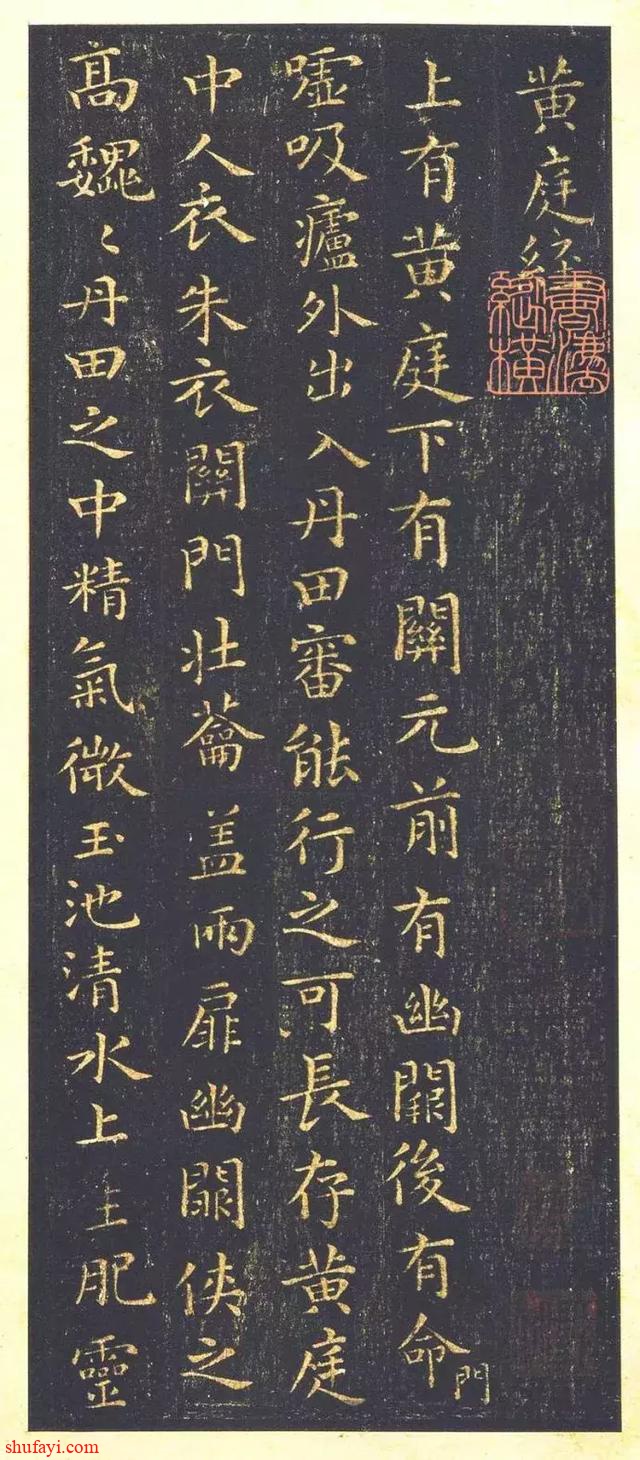 黃庭經
上有黃庭下有關元前有幽闕後有命門
噓吸廬外出入丹田審能行之可長存黃庭
中人衣朱衣關門壯蘥蓋兩扉幽闕俠之
高魏〻丹田之中精氣微玉池清水上生肥靈
shufayi.com